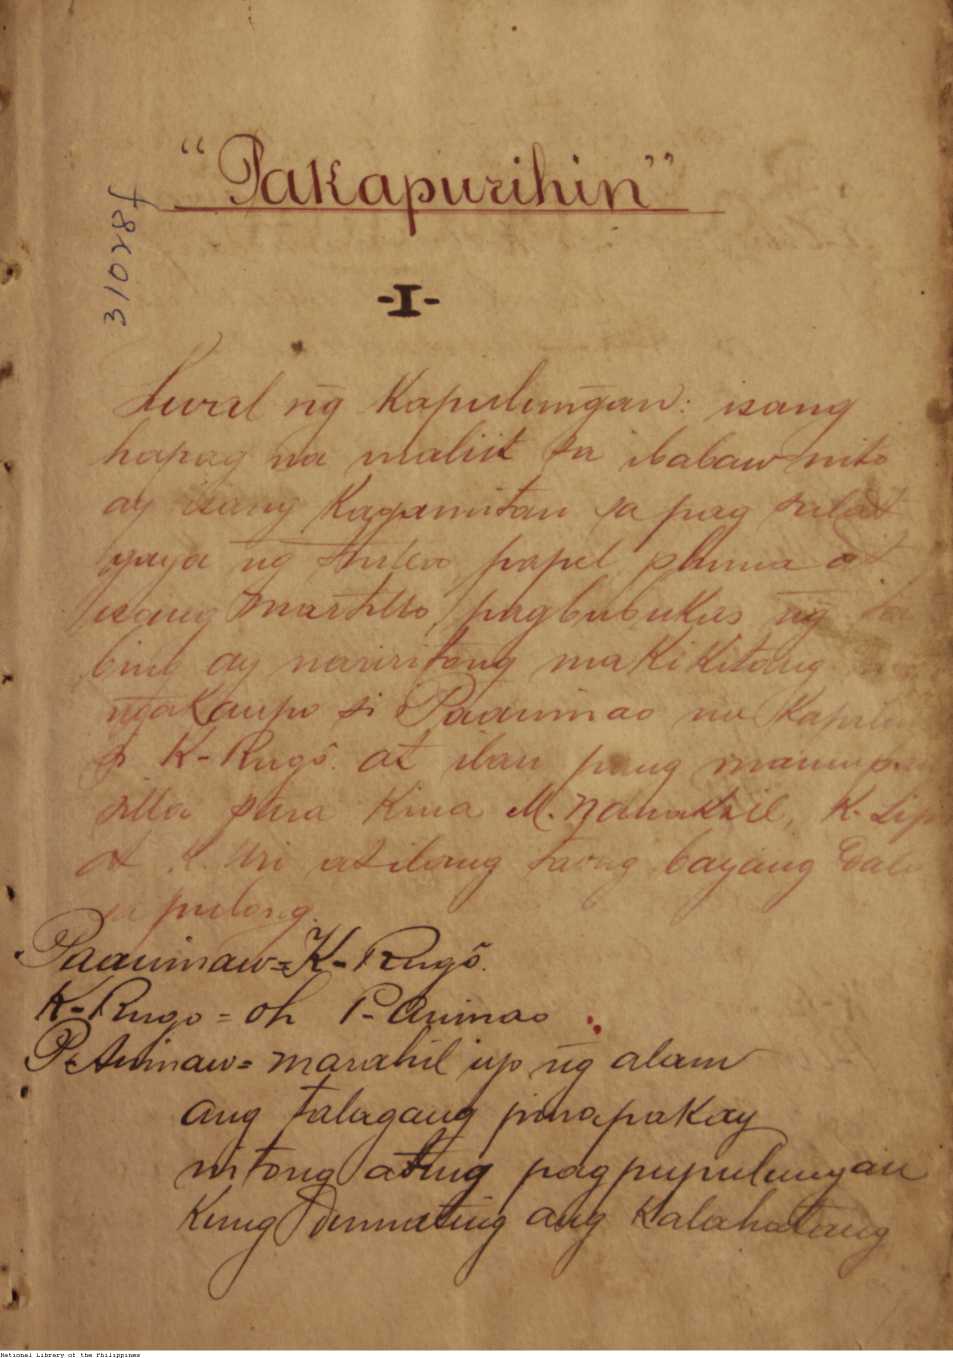 "Pakapurihin"
31028f
-I-
Lugal ng̃ Kapulung̃an: isang
hapag na maliit sa ibabaw nito
ay isang Kagamitan sa pag sulat
gaya ng̃ tintero, papel pluma at
isang martillo, pagbubukas ng̃ ta
bing ay nariritong makikitang
ng̃akaupo si Paanimao na
si K-Rugô. at iban pang mauupu
silla para Kina M. Nanaksil, K. Lip
at K. Uri at ilang tavong bayang
sa pulong.
Paanimaw = K-Rugô.
K-Rugo = oh P-Animao
P-Animaw = marahil iyo ng̃ alam
ang talagang pinapakay
nitong ating pagpupulungan
Kung Dumating ang Kalahatang
National Library of the Philippines